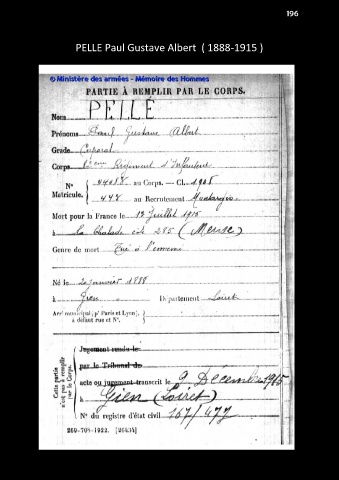 196
PELLE Paul Gustave Albert ( 1888-1915 )
© Ministère des armées - Mémoire des Hommes
PARTIE À REMPLIR PAR LE CORPS.
Nom PELLÉ
Prénoms Paul Gustave Albert
Grade Caporal
Corps Régiment d'Infanterie
N° au Corps. — Cl. 1908
Matricule. 442 au Recrutement Montargis
Mort pour la France le 13 Juillet 1915
à La Chalade côte 285 (Meuse)
Genre de mort Tué à l'ennemi
Né le 20 janvier 1888
à Gien Département Loiret
Arrt municipal (pr Paris et Lyon),
à défaut rue et N°.
Cette partie n'est pas à remplir par le Corps.
Jugement rendu le
par le Tribunal de
acte ou jugement transcrit le 9 Décembre 1915
à Gien (Loiret)
N° du registre d'état civil 167/477
269-708-1922. [26434]